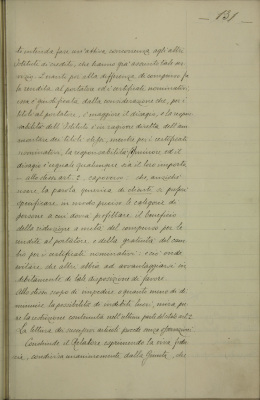 — 131 —
s'intenda fare un'attiva concorrenza agli altri
Istituti di credito, che hanno già assunto tale ser-
vizio. In quanto poi alla differenza di compenso fra
la rendita al portatore ed i certificati nominativi,
essa è giustificata dalla considerazione che, per i
titoli al portatore, è maggiore il disagio, e la respon-
sabilità dell'Istituto è in ragione diretta dell'am-
montare dei titoli stessi, mentre per i certificati
nominativi, la responsabilità è minore ed il
disagio è uguale qualunque sia il loro importo
— allo stesso art. 2. capoverso che, anziché
usare la parola generica di clienti, si possa
specificare, in modo preciso le categorie di
persone a cui dovrà profittare il beneficio
della riduzione a metà del compenso per le
rendite al portatore e della gratuità del cam-
bio per i certificati nominativi: così onde
evitare che altri abbia ad avvantaggiarsi in-
debitamente di tale disposizione di favore.
Allo stesso scopo di impedire o quanto meno di di-
minuire la possibilità di indebiti lucri, mira pu-
re la restrizione contenuta nell'ultima parte del citato art. 2.
La lettura dei successivi articoli procede senza osservazioni
Conchiude il Relatore esprimendo la viva fidu-
cia, condivisa unanimemente dalla Giunta, che